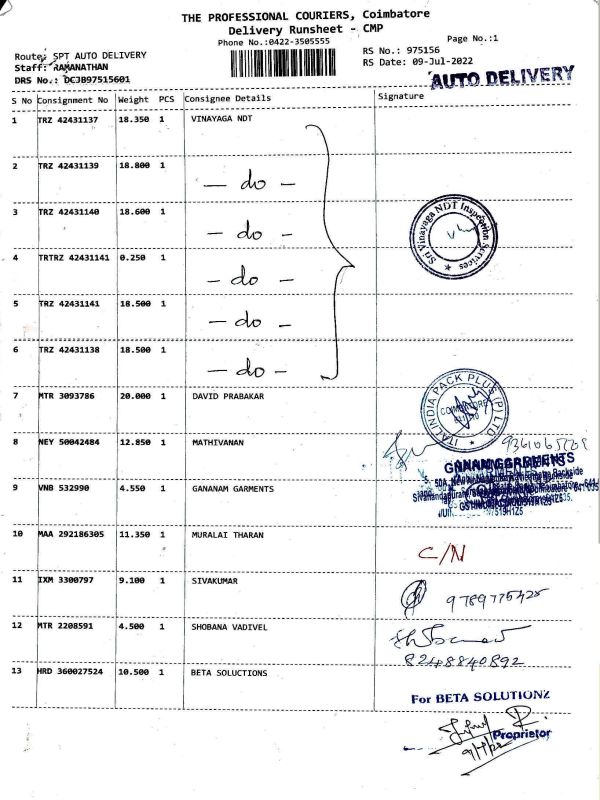 THE PROFESSIONAL COURIERS, Coimbatore
Delivery Runsheet - CMP
Phone No.:0422-3505555
Page No.:1
Route: SPT AUTO DELIVERY
RS No.: 975156
Staff: RAMANATHAN
RS Date: 09-Jul-2022
DRS No.: DCJB97515601
AUTO DELIVERY
S No Consignment No Weight PCS Consignee Details Signature
1 TRZ 42431137 18.350 1 VINAYAGA NDT
2 TRZ 42431139 18.800 1 - do -
3 TRZ 42431140 18.600 1 - do -
Sri Vinayaga NDT Inspection Services
4 TRTRZ 42431141 0.250 1 - do -
5 TRZ 42431141 18.500 1 - do -
6 TRZ 42431138 18.500 1 - do -
7 MTR 3093786 20.000 1 DAVID PRABAKAR
ITAL INDIA PACK PLUS (P) LTD
8 NEY 50042484 12.850 1 MATHIVANAN
GANAM GARMENTS
9 VNB 532990 4.550 1 GANANAM GARMENTS
10 MAA 292186305 11.350 1 MURALAI THARAN C/N
11 IXM 3300797 9.100 1 SIVAKUMAR
12 MTR 2208591 4.500 1 SHOBANA VADIVEL
8248840892
13 HRD 360027524 10.500 1 BETA SOLUCTIONS
For BETA SOLUTIONZ
Proprietor
9/7/22